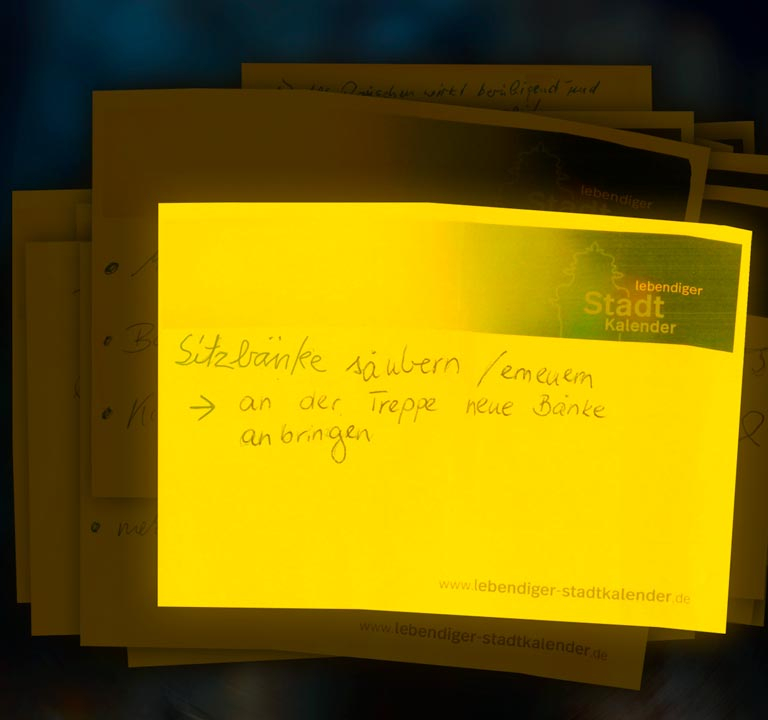 → der wirkt beruhigend und
lebendiger
Stadt
lebendiger
Stadt
Kalender
Sitzbänke säubern / erneuern
→ an der Treppe neue Bänke
anbringen
www.lebendiger-stadtkalender.de
www.lebendiger-stadtkalender.de